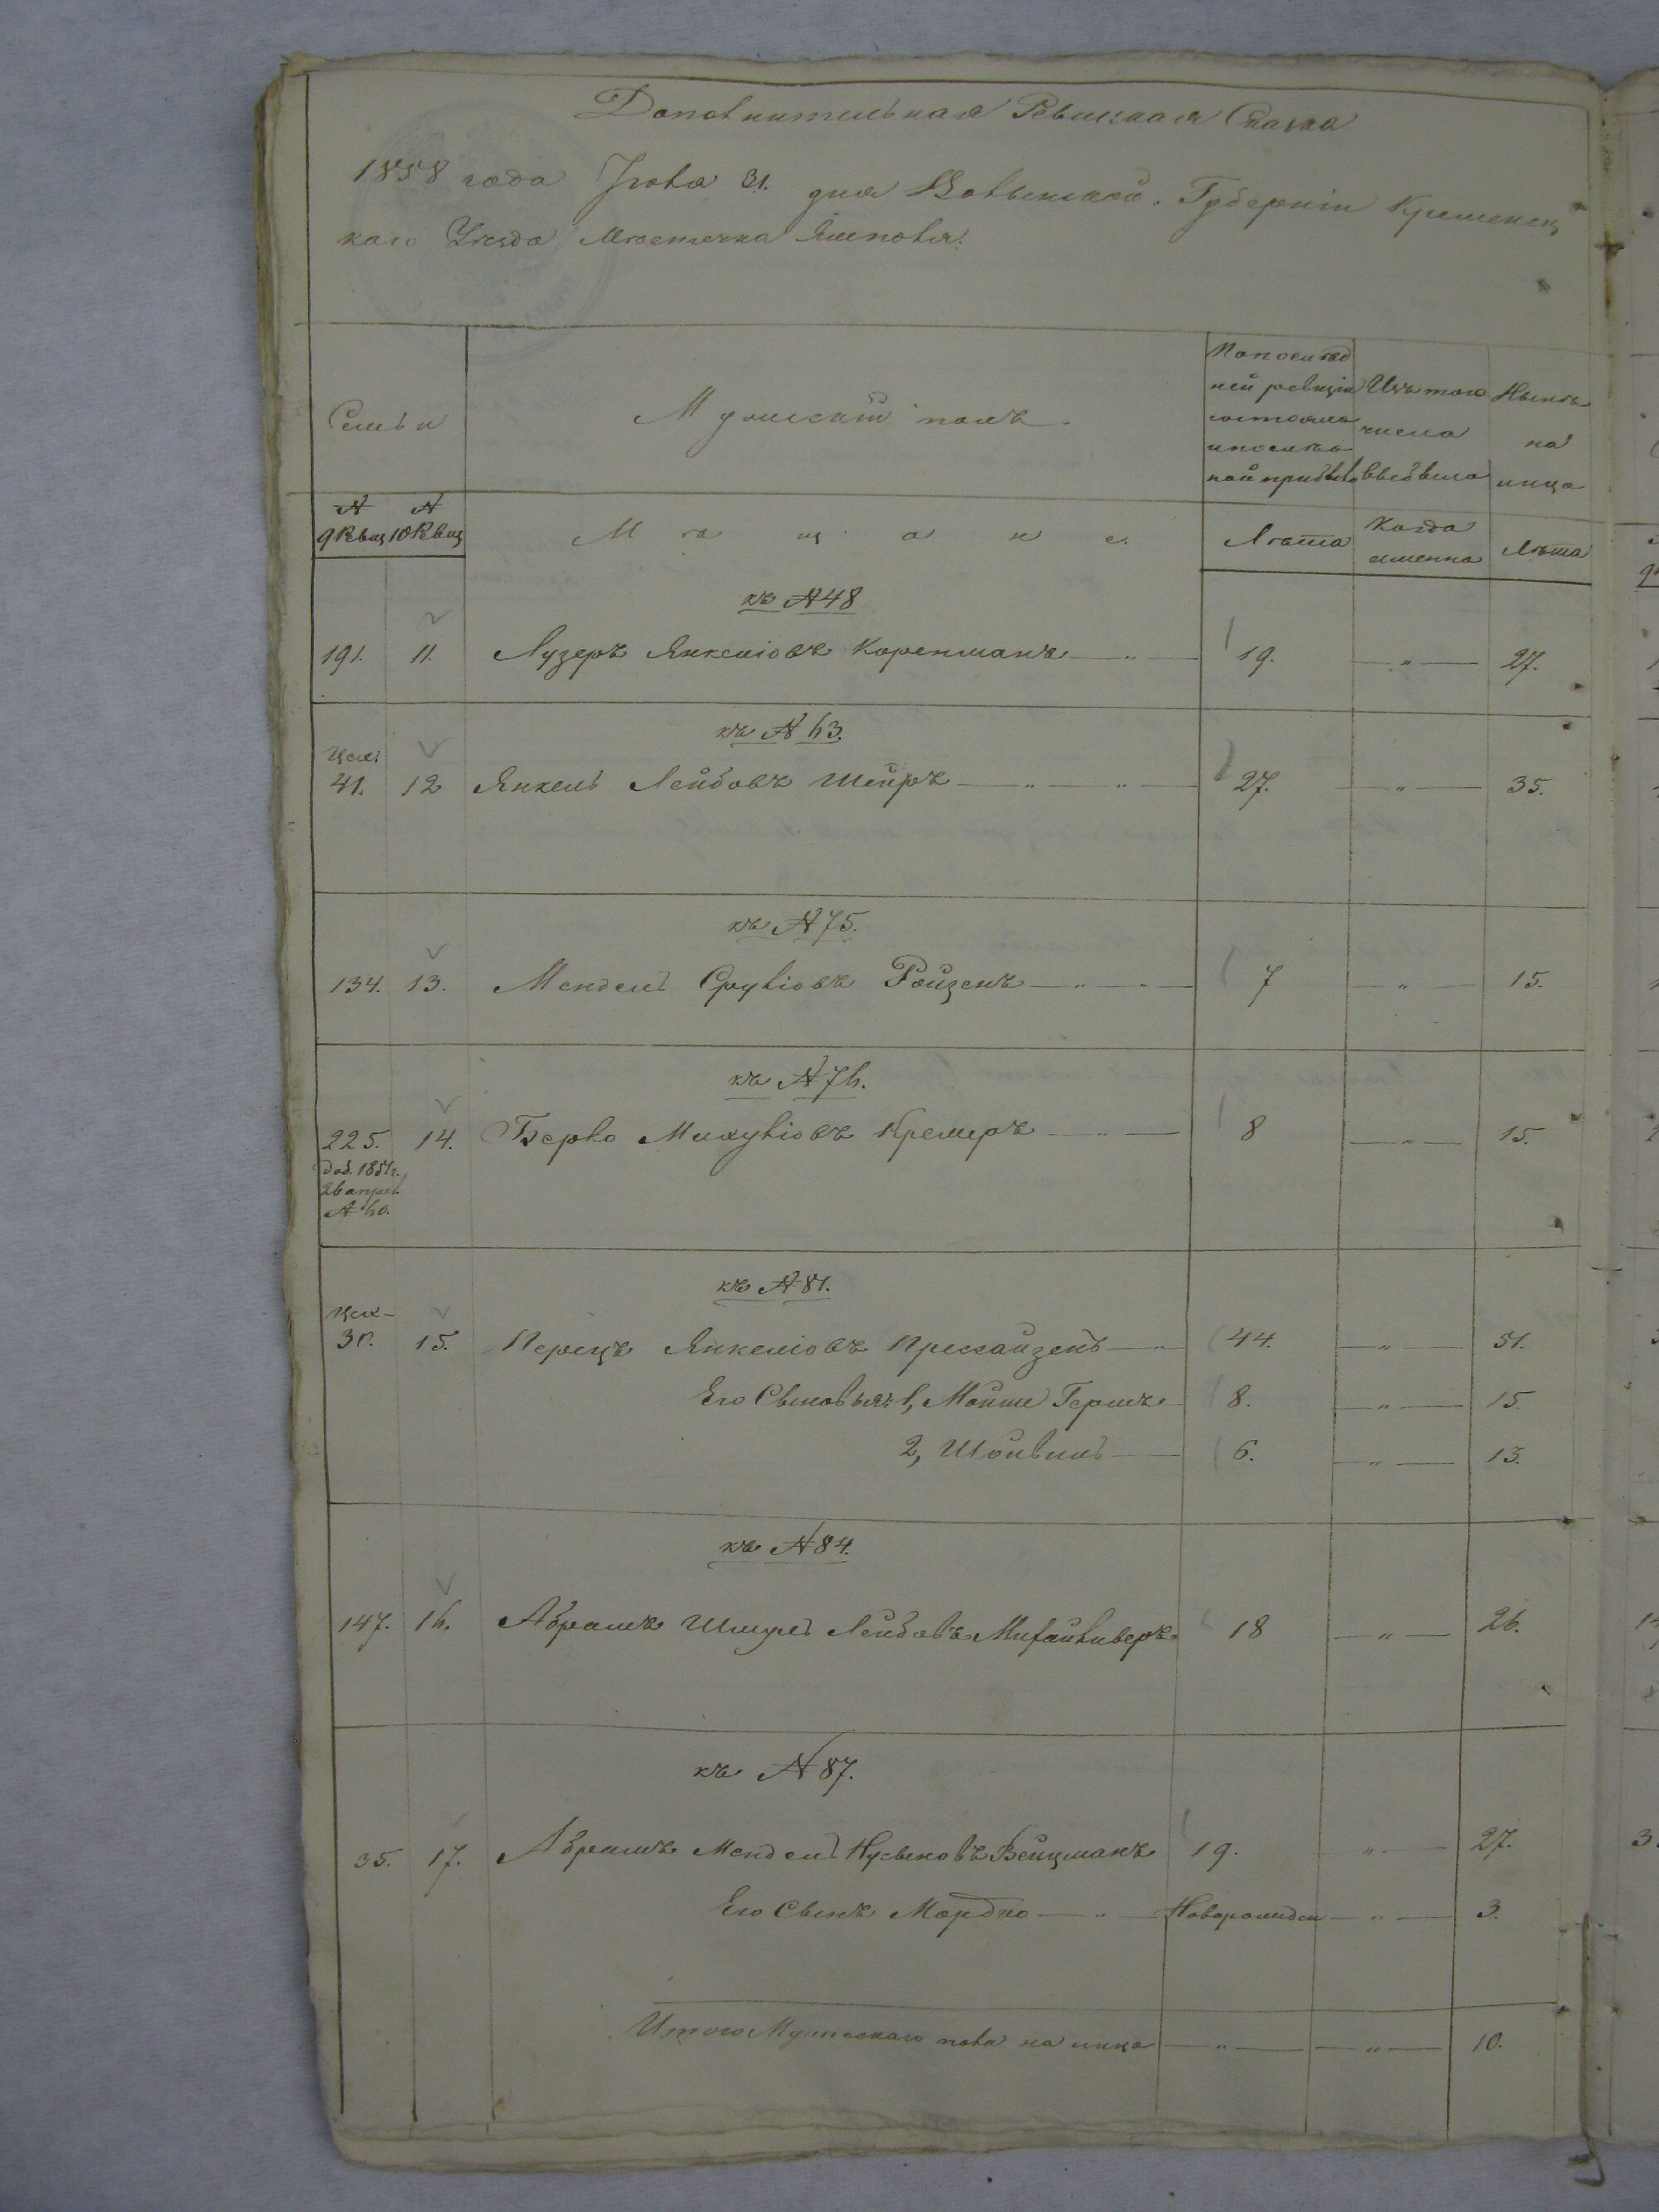 Дополнительная Ревизская Сказка
1858 года Іюля 31. дня Волынской Губерніи Кременец
каго Уезда Мѣстечка Ямполя.
Семьи
Мужескій полъ.
По послѣд
ней ревизіи
состояло
и после
ной прибыло
Изъ того
числа
выбыло
Нынѣ
на
лицо
№ 9 Ревиз
№ 10 Ревиз
М ѣ щ а н е.
Лѣта
Когда
именно
Лѣта
къ № 48
191. 11. Лузеръ Янкеліовъ Коренманъ — " — 19. — " — 27.
къ № 63.
Цех:
41. 12 Янкель Лейбовъ Шейръ — " — " — 27. — " — 35.
къ № 75.
134. 13. Мендель Сруліовъ Ройзенъ — " — " — 7 — " — 15.
къ № 76.
225. 14. Берко Михуліовъ Кремеръ — " — 8 — " — 15.
доб. 1851г.
26 апрел.
№ 60.
къ № 81.
Цех —
30. 15. Перецъ Янкеліовъ Пресайзенъ — " 44. — " — 51.
Его Сыновья: 1, Мойше Гершъ 8. — " — 15.
2, Шойвиль — 6. — " — 13.
къ № 84.
147. 16. Абрамъ Шмуль Лейбовъ 18 — " — 26.
къ № 87.
35. 17. Абрамъ Мендель Нусыновъ Вейцманъ 19. " — 27.
Его Сынъ Мордко — " — Новорожден — " — 3.
Итого Мужескаго пола на лицо — " — — " — 10.